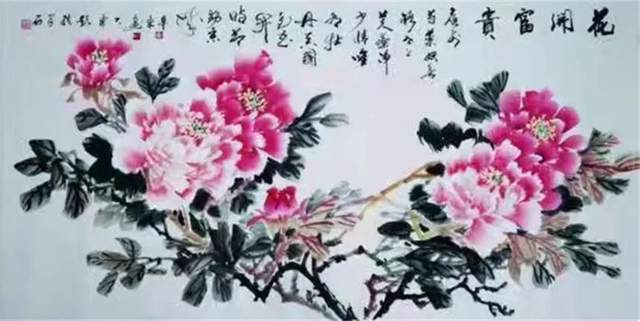 花開富貴
庭前
芍藥妖無
格池上
芙蕖淨
少情唯
有牡
丹真國
色花
開
時節
動京
城